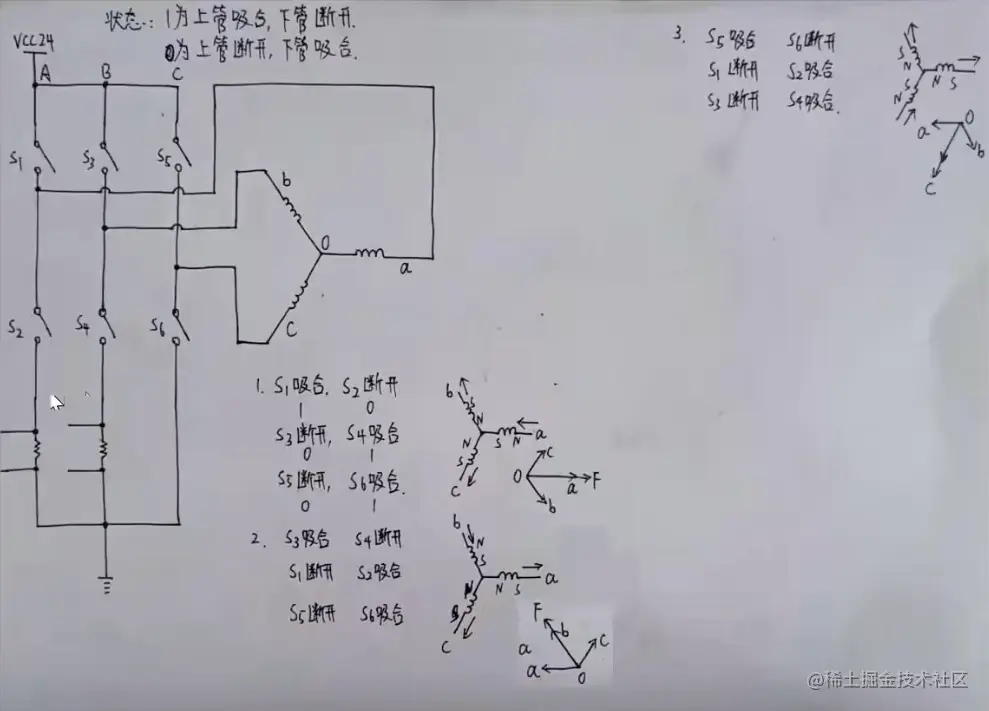 状态: 1为上管吸合,下管断开.
0为上管断开,下管吸合.
VCC24
A B C
S1 S3 S5
b
O
a
C
S2 S4 S6
1. S1吸合, S2断开
1 0
S3断开, S4吸合
0 1
S5断开, S6吸合.
0 1
b S N
N S S N a
C
O C a F b
2. S3吸合 S4断开
S1断开 S2吸合
S5断开 S6吸合
b N S
N N S a
C
F b C
a
a O
3. S5吸合 S6断开
S1断开 S2吸合
S3断开 S4吸合.
S N
S N S
N
a O b
C
@稀土掘金技术社区